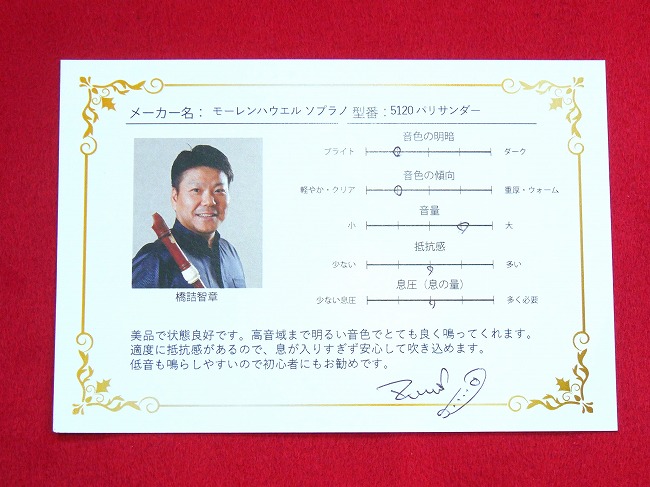 メーカー名： モーレンハウエル ソプラノ 型番：5120 パリサンダー
音色の明暗
ブライト ダーク
音色の傾向
軽やか・クリア 重厚・ウォーム
音量
小 大
抵抗感
少ない 多い
息圧（息の量）
少ない息圧 多く必要
橋詰智章
美品で状態良好です。高音域まで明るい音色でとても良く鳴ってくれます。
適度に抵抗感があるので、息が入りすぎず安心して吹き込めます。
低音も鳴らしやすいので初心者にもお勧めです。